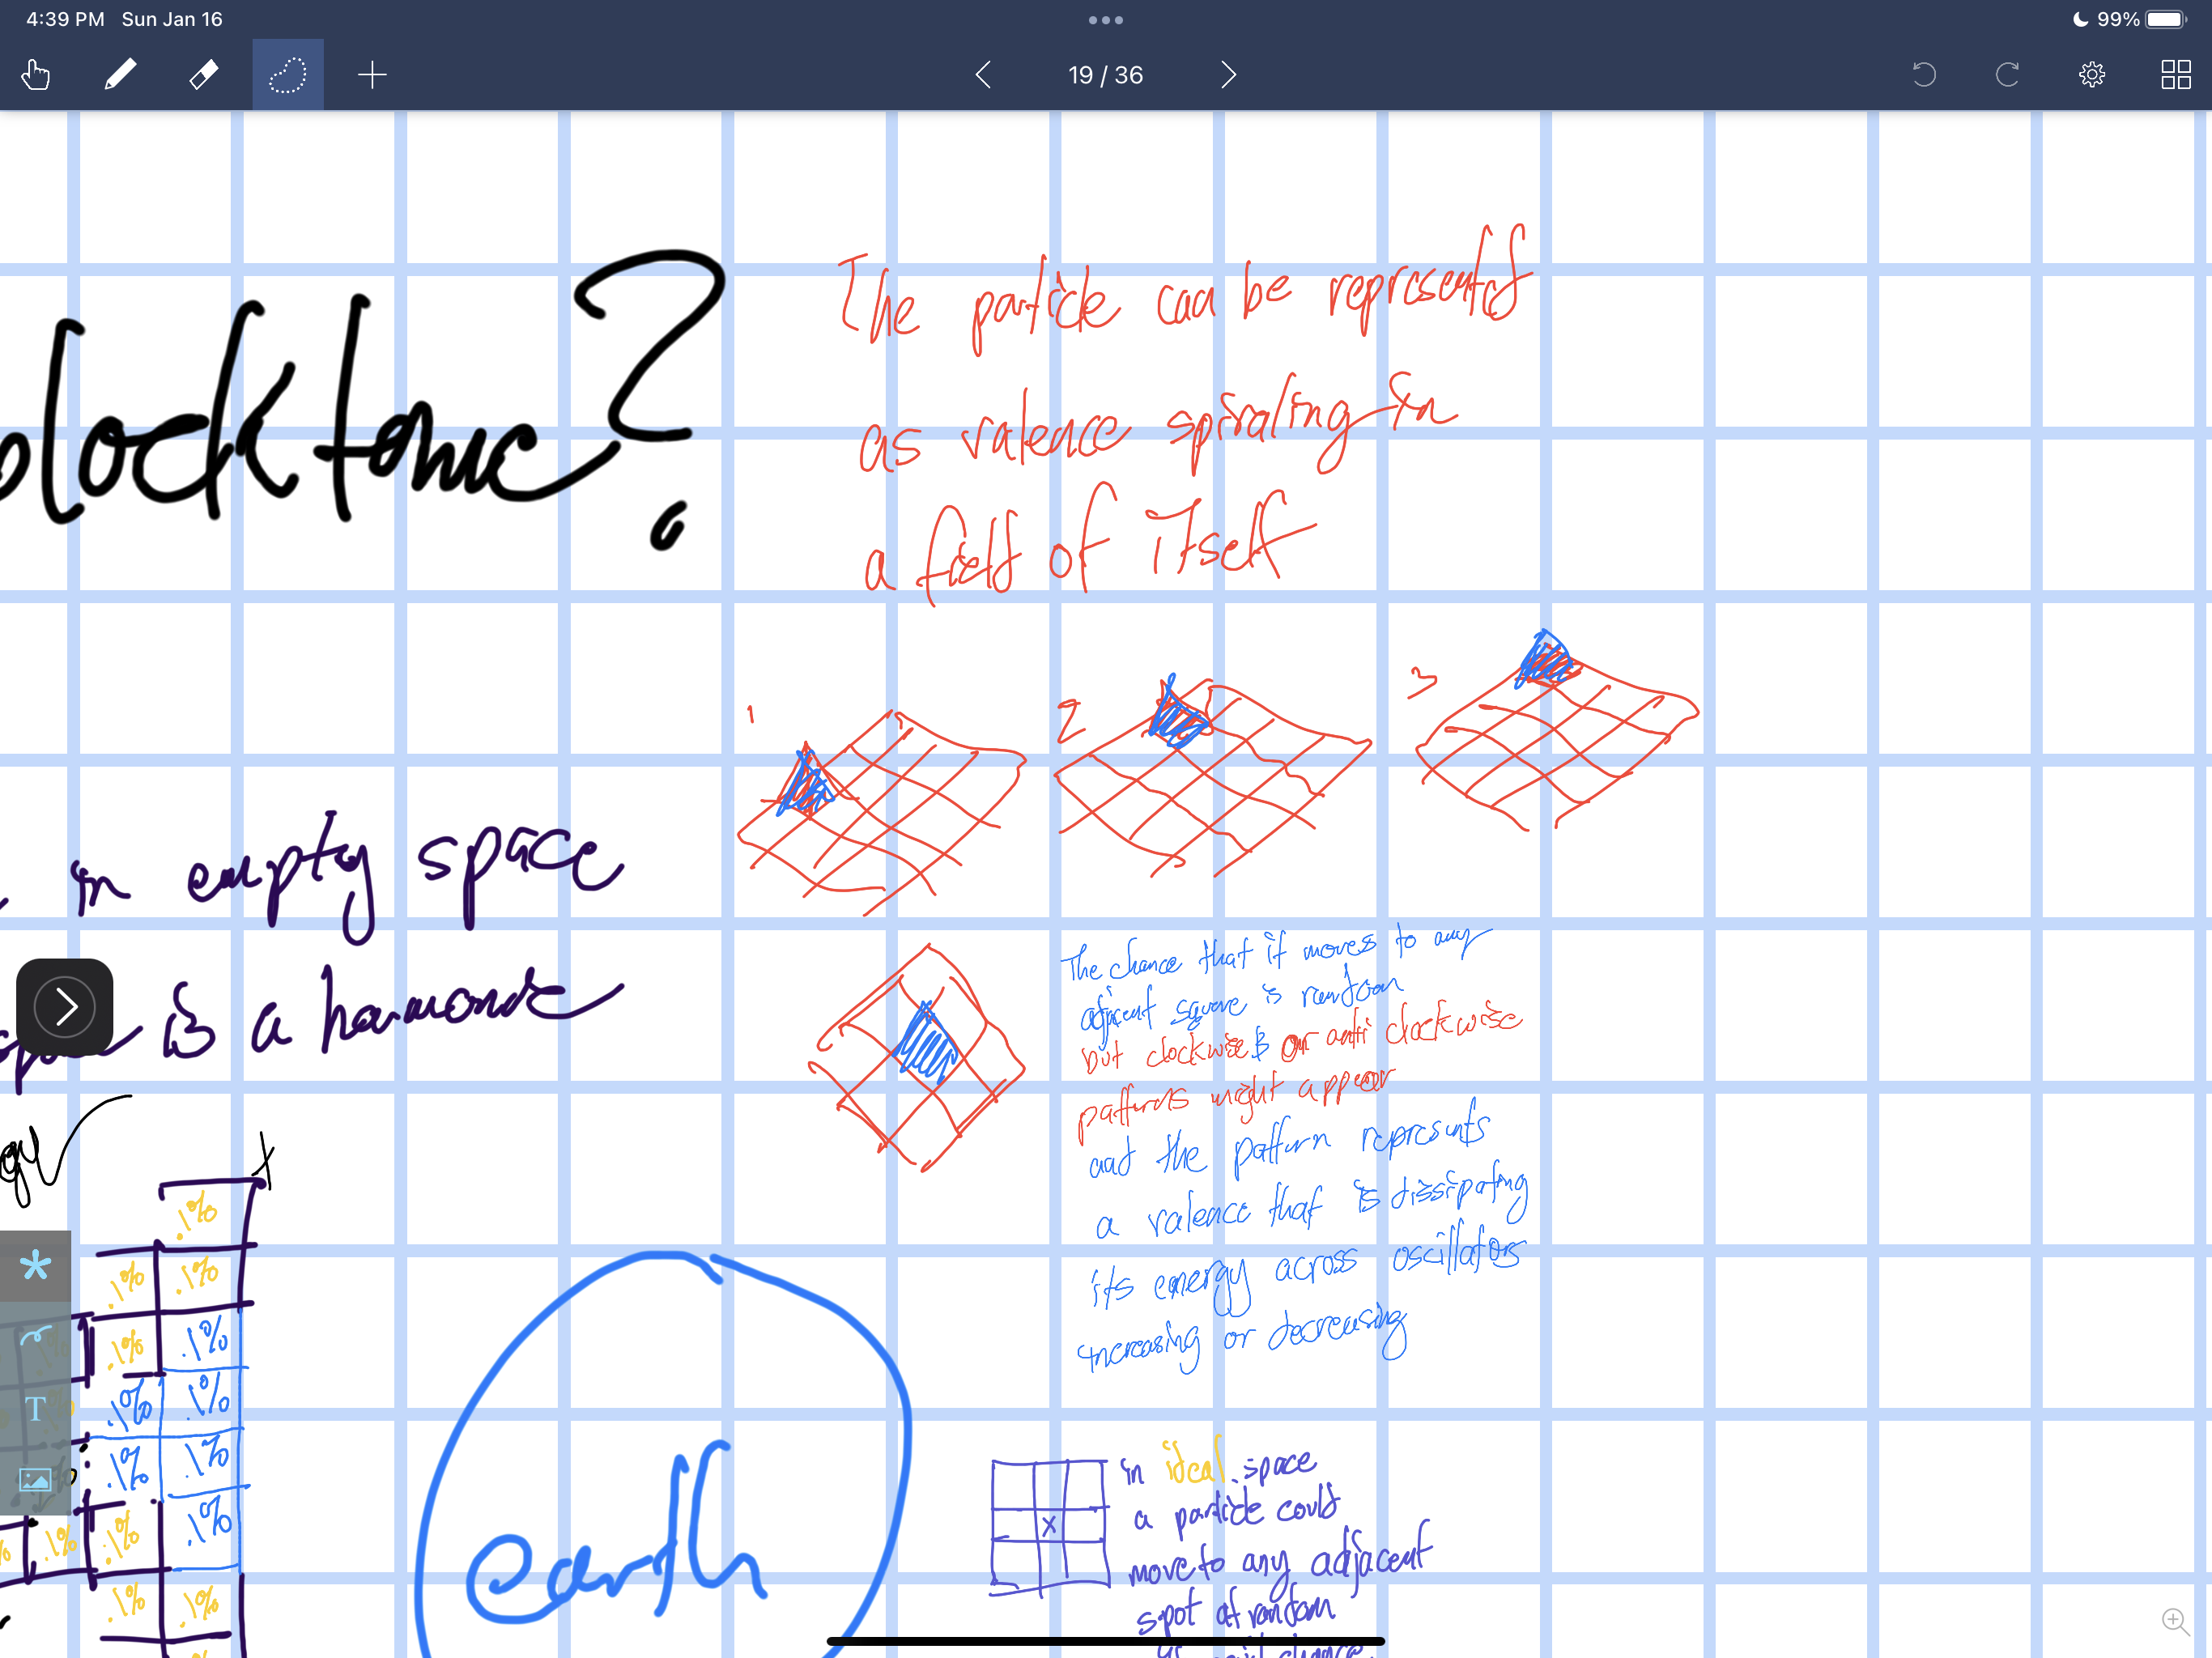 4:39 PM Sun Jan 16
99%
19 / 36
locktonic?
The particle can be represented
as valence spiraling in
a field of itself
1
2
3
in empty space
is a harmonic
The chance that it moves to any
adjacent square is random
but clockwise or anti clockwise
patterns might appear
and the pattern represents
a valence that is dissipating
its energy across oscillators
increasing or decreasing
.1%
.1% .1%
.1% .1%
.1% .1%
.1% .1%
.1% .1% .1%
.1% .1%
T
earth
x
in ideal space
a particle could
move to any adjacent
spot at random